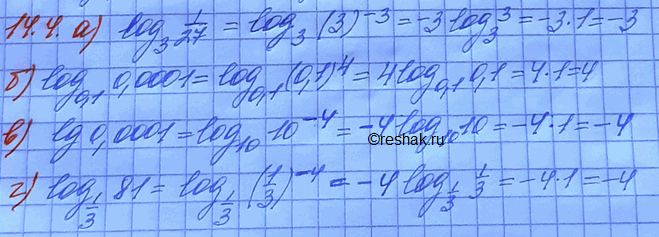 14.4. а) log₃ 1/27 = log₃ (3)⁻³ = -3 log₃ 3 = -3·1 = -3
б) log₀,₁ 0,0001 = log₀,₁ (0,1)⁴ = 4 log₀,₁ 0,1 = 4·1 = 4
в) lg 0,0001 = log₁₀ 10⁻⁴ = -4 log₁₀ 10 = -4·1 = -4
©reshak.ru
г) log_{1/3} 81 = log_{1/3} (1/3)⁻⁴ = -4 log_{1/3} 1/3 = -4·1 = -4